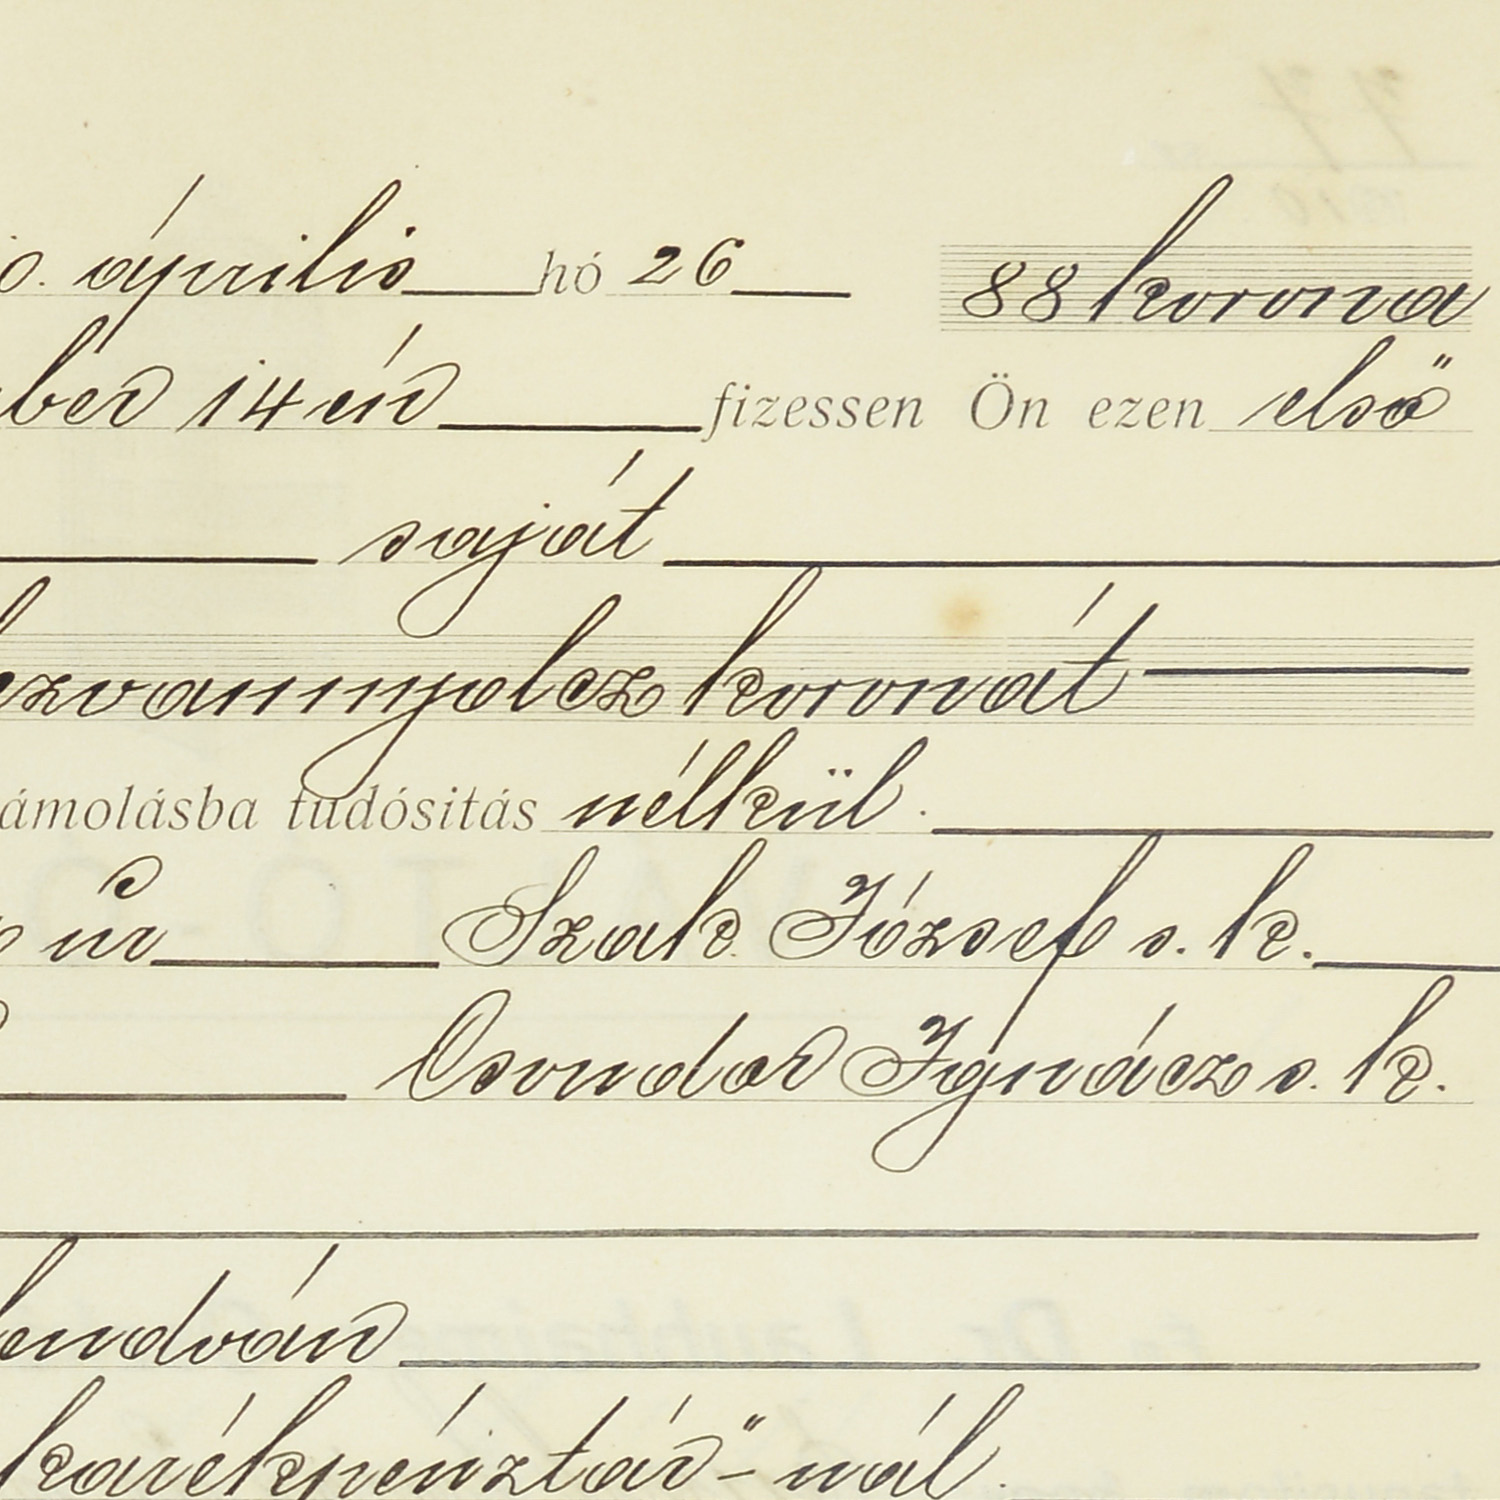 április hó 26 88 korona
ber 14 én fizessen Ön ezen első
saját
zvannyolcz koronát
ámolásba tudósitás nélkül.
úr Szak József s. k.
Csondor Ignácz s. k.
endván
karékpénztár"-nál.